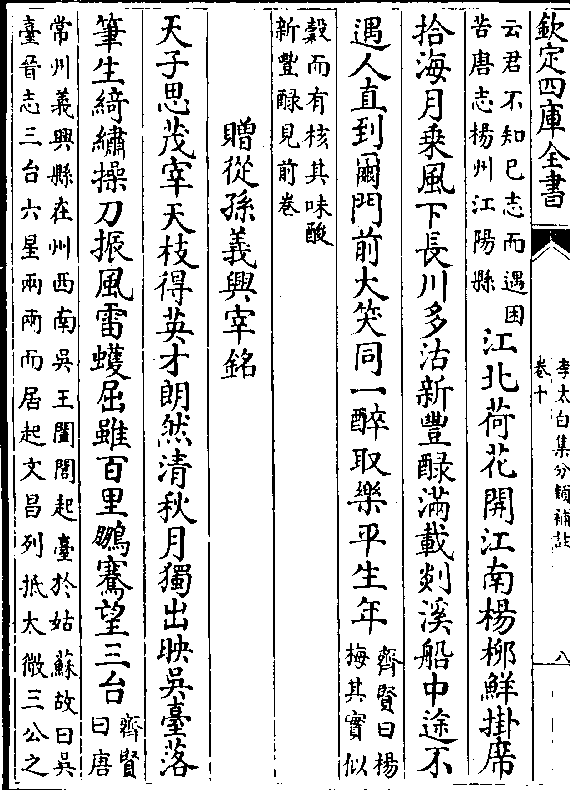 欽定四庫全書
李太白集分類補註
卷十
八
云君不知已志而遇困
苦唐志楊州江陽縣
江北荷花開江南楊栁鮮掛席
拾海月乗風下長川多沽新豐醁滿載剡溪船中途不
遇人直到爾門前大笑同一醉取樂平生年
齊賢曰楊
梅其實似
穀而有核其味酸
新豐醁見前卷
贈從孫義興宰銘
天子思茂宰天枝得英才朗然清秋月獨出映吳臺落
筆生綺繡操刀振風雷蠖屈雖百里鵬騫望三台
齊賢
曰唐
常州義興縣在州西南吳王闔閭起臺於姑蘇故曰吳
臺晉志三台六星兩兩而居起文昌列抵太微三公之